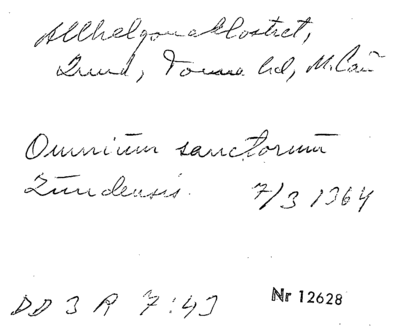 Allhelgonaklostret,
Lund, Torna hd, M.län
Omnium sanctorum
Lundensis. 7/3 1364
DD 3 R 7:43 Nr 12628